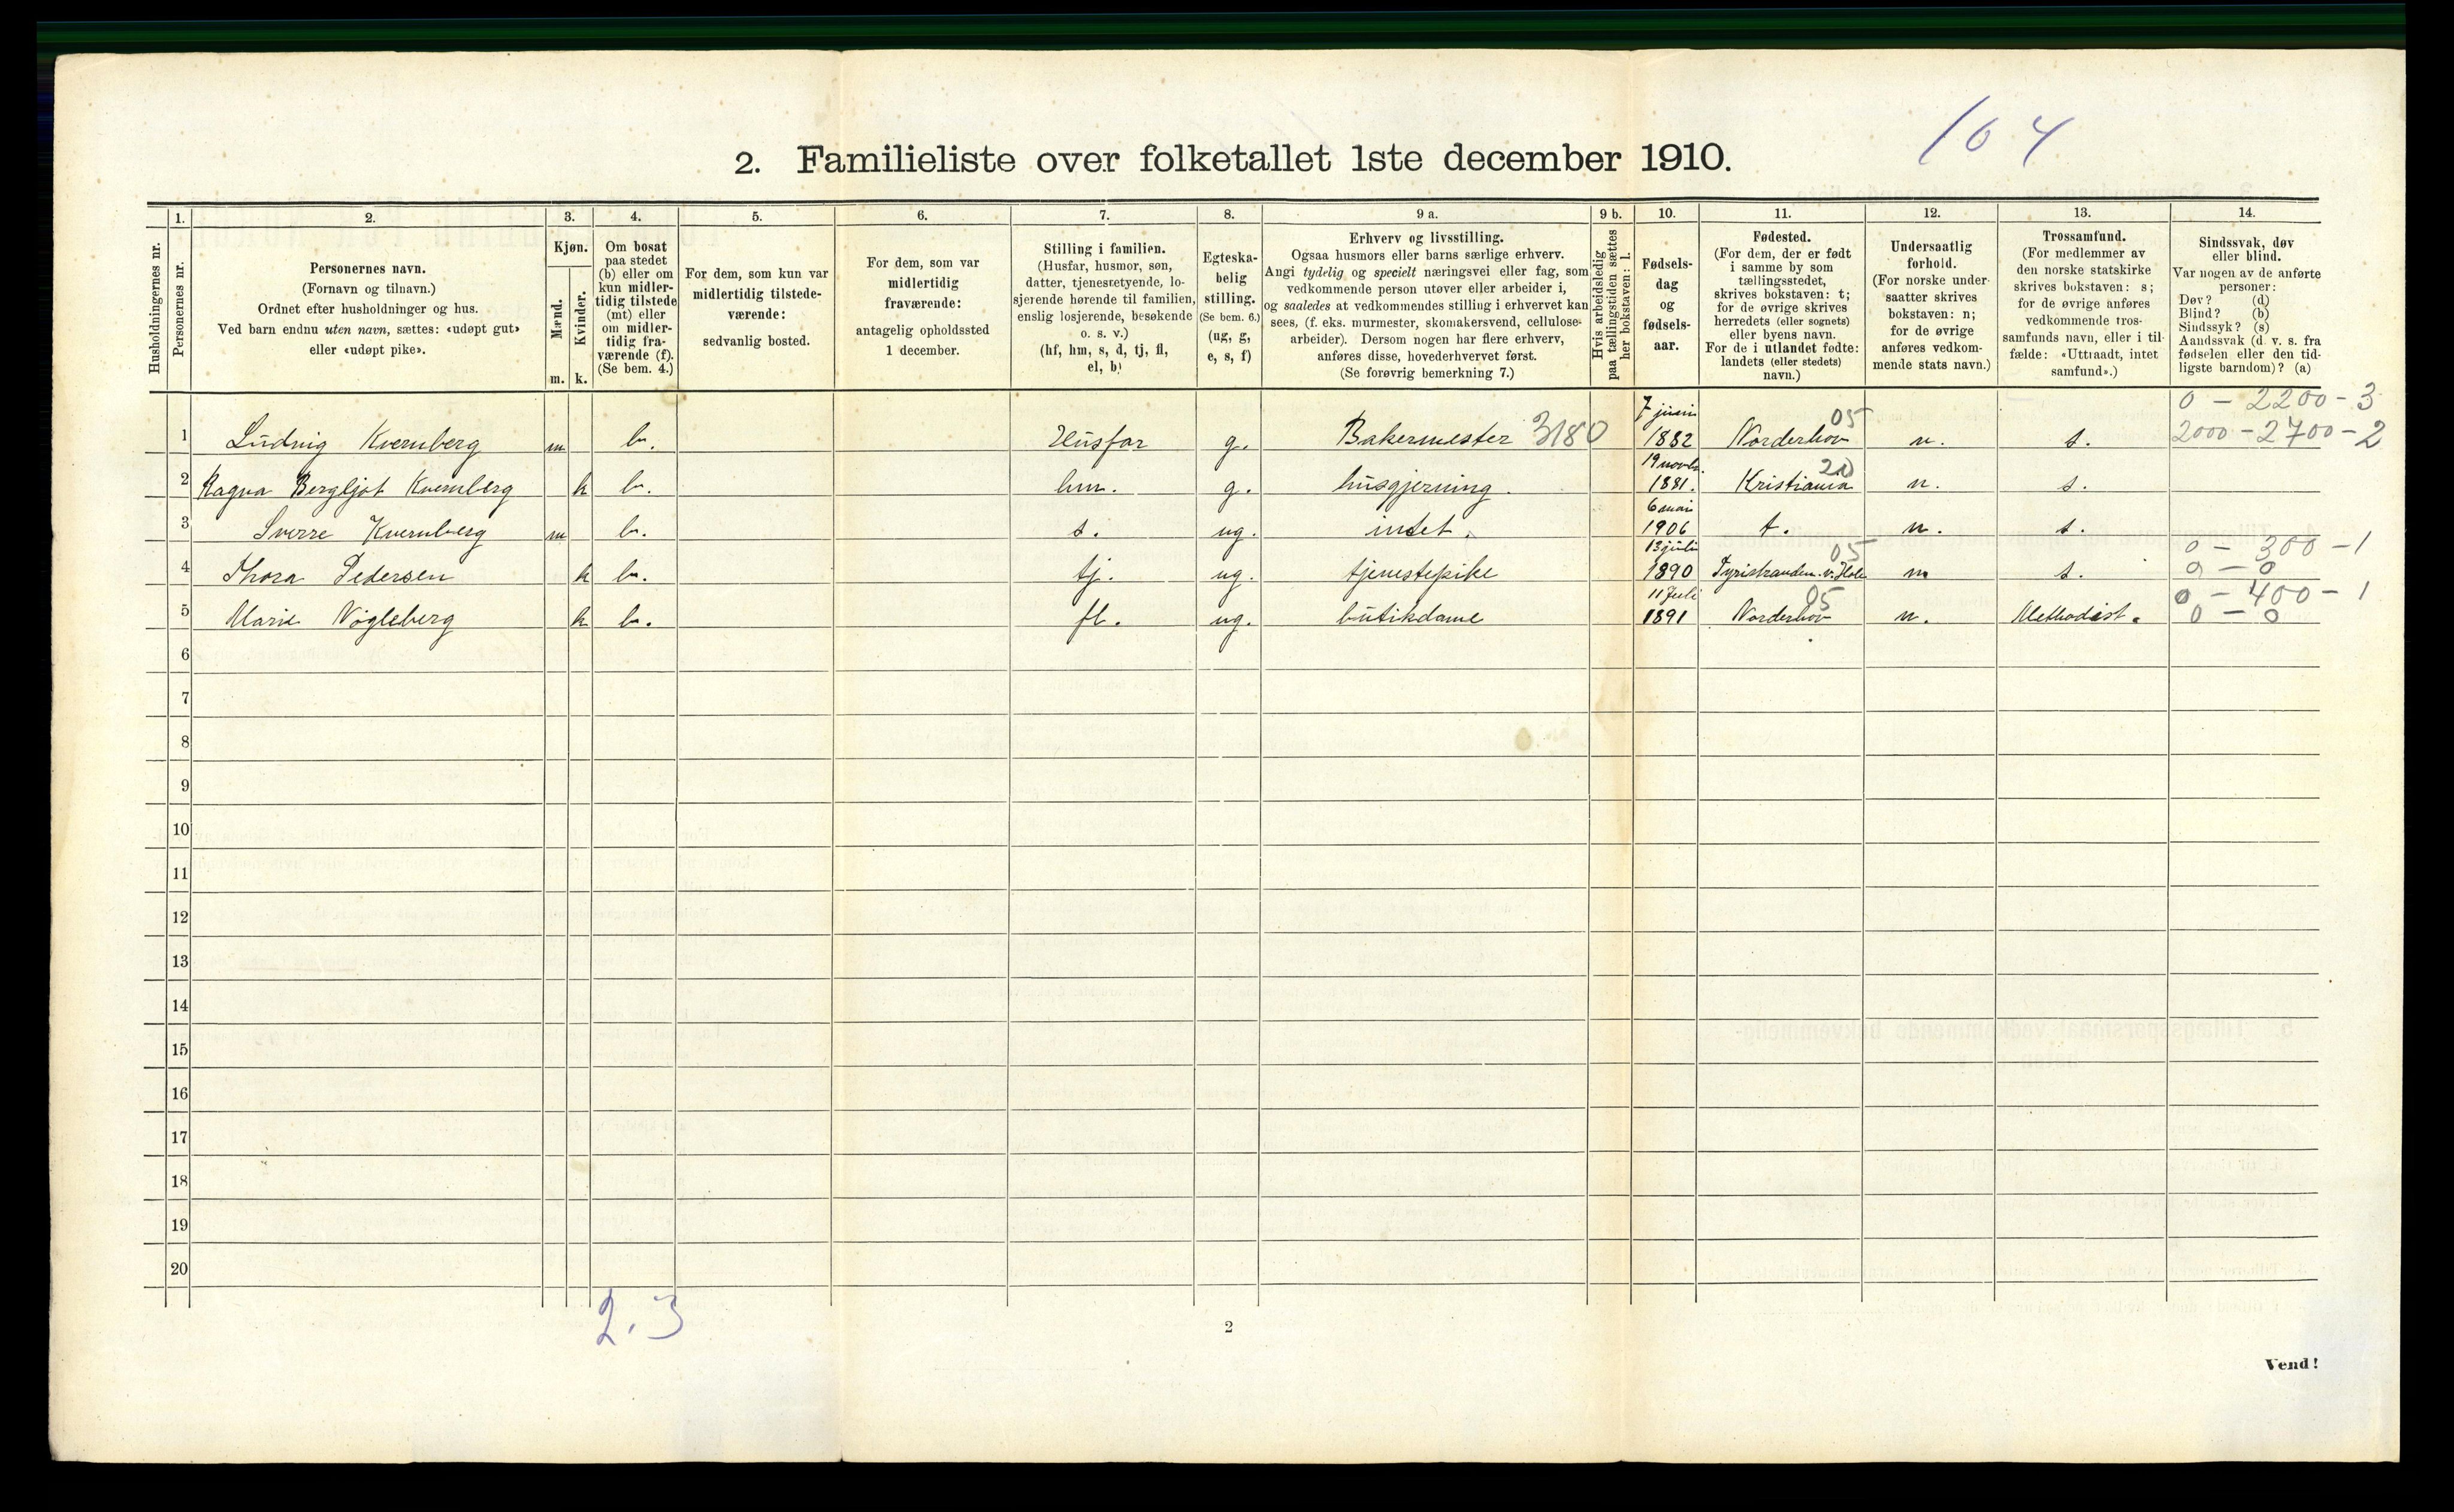 104
2. Familieliste over folketallet 1ste december 1910.
1. 2. 3. 4. 5. 6. 7. 8. 9 a. 9 b. 10. 11. 12. 13. 14.
Husholdningernes nr.
Personernes nr.
Personernes navn.
(Fornavn og tilnavn.)
Ordnet efter husholdninger og hus.
Ved barn endnu uten navn, sættes: «udøpt gut»
eller «udøpt pike».
Kjøn.
Mænd.
Kvinder.
m. k.
Om bosat
paa stedet
(b) eller om
kun midler-
tidig tilstede
(mt) eller
om midler-
tidig fra-
værende (f).
(Se bem. 4.)
For dem, som kun var
midlertidig tilstede-
værende:
sedvanlig bosted.
For dem, som var
midlertidig
fraværende:
antagelig opholdssted
1 december.
Stilling i familien.
(Husfar, husmor, søn,
datter, tjenestetyende, lo-
sjerende hørende til familien,
enslig losjerende, besøkende
o. s. v.)
(hf, hm, s, d, tj, fl,
el, b)
Egteska-
belig
stilling.
(Se bem. 6.)
(ug, g,
e, s, f)
Erhverv og livsstilling.
Ogsaa husmors eller barns særlige erhverv.
Angi tydelig og specielt næringsvei eller fag, som
vedkommende person utøver eller arbeider i,
og saaledes at vedkommendes stilling i erhvervet kan
sees, (f. eks. murmester, skomakersvend, cellulose-
arbeider). Dersom nogen har flere erhverv,
anføres disse, hovederhvervet først.
(Se forøvrig bemerkning 7.)
Hvis arbeidsledig
paa tællingstiden sættes
her bokstaven: l.
Fødsels-
dag
og
fødsels-
aar.
Fødested.
(For dem, der er født
i samme by som
tællingsstedet,
skrives bokstaven: t;
for de øvrige skrives
herredets (eller sognets)
eller byens navn.
For de i utlandet fødte:
landets (eller stedets)
navn.)
Undersaatlig
forhold.
(For norske under-
saatter skrives
bokstaven: n;
for de øvrige
anføres vedkom-
mende stats navn.)
Trossamfund.
(For medlemmer av
den norske statskirke
skrives bokstaven: s;
for de øvrige anføres
vedkommende tros-
samfunds navn, eller i til-
fælde: «Uttraadt, intet
samfund».)
Sindssvak, døv
eller blind.
Var nogen av de anførte
personer:
Døv? (d)
Blind? (b)
Sindssyk? (s)
Aandssvak (d. v. s. fra
fødselen eller den tid-
ligste barndom)? (a)
7 juni 05 0 - 2200 - 3
1 Ludvig Kvernberg m b. Husfar g. Bakermester 3180 1882 Norderhov n. s. 2000 - 2700 - 2
19 novbr. 20
2 Ragna Bergljot Kvernberg k b. hm. g. husgjerning. 1881. Kristiania n. s.
6 mai
3 Sverre Kvernberg m b. s. ug. intet. 1906 t. n. s.
13 juli 05 0 - 300 - 1
4 Thora Pedersen k b. tj. ug. tjenestepike 1890 Tyristranden v. Hole n s. 0 - 0
11 Juli 05 0 - 400 - 1
5 Marie Nøgleberg k b. fl. ug. butikdame 1891 Norderhov n. Methodist. 0 - 0
6
7
8
9
10
11
12
13
14
15
16
17
18
19
20
2. 3
2
Vend!